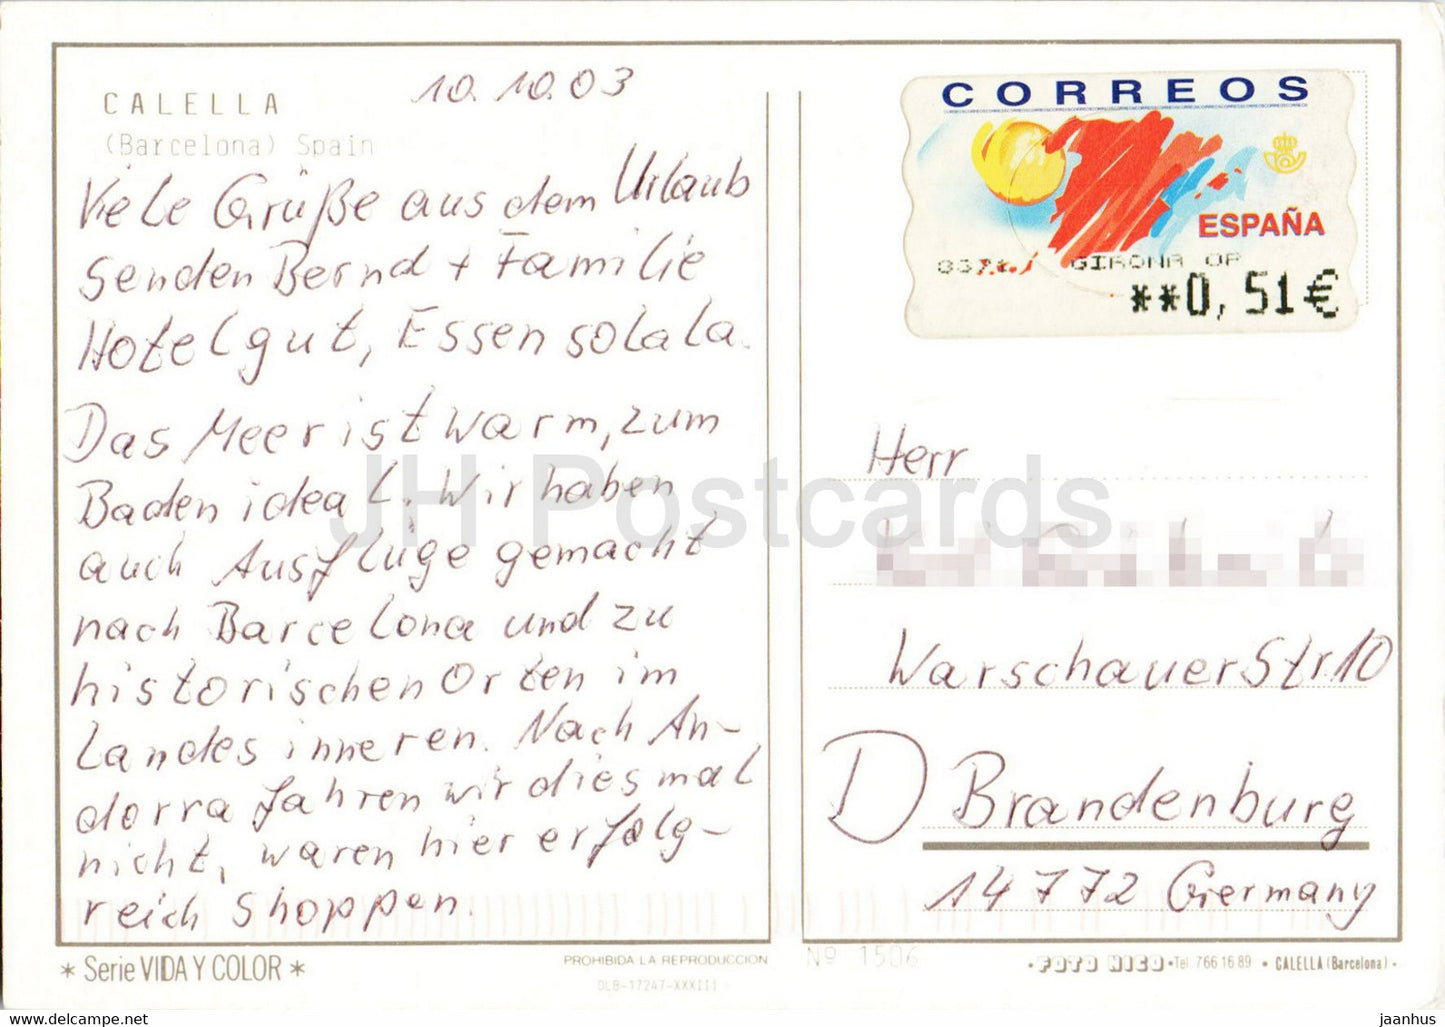 CALELLA
(Barcelona) Spain
10.10.03
Viele Grüße aus dem Urlaub
senden Bernd + Familie
Hotel gut, Essen so la la.
Das Meer ist warm, zum
Baden ideal. Wir haben
auch Ausflüge gemacht
nach Barcelona und zu
historischen Orten im
Landesinneren. Nach An-
dorra fahren wir diesmal
nicht, waren hier erfolg-
reich shoppen.
* Serie VIDA Y COLOR *
PROHIBIDA LA REPRODUCCION
DLB-17247-XXXIII
Nº 1506
CORREOS
ESPAÑA
GIRONA OP
**0,51€
Herr
Warschauer Str. 10
D Brandenburg
14772 Germany
• FOTO NICO • Tel. 766 16 89 • CALELLA (Barcelona) •
JH Postcards
www.delcampe.net
jaanhus